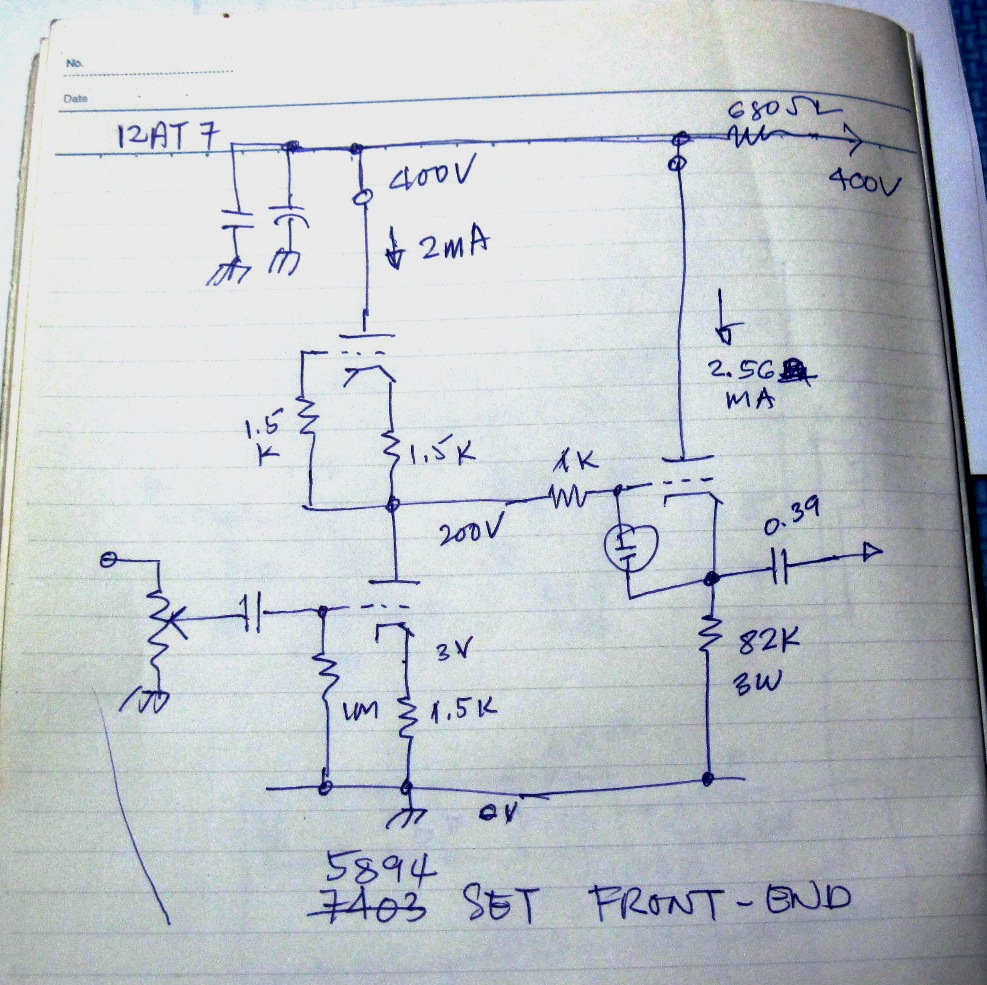 No.
Date
12AT7
680Ω
400V
400V
2mA
2.56
mA
1.5
K
1.5K
1K
200V
0.39
3V
82K
3W
1M
1.5K
0V
5894
7403 SET FRONT-END